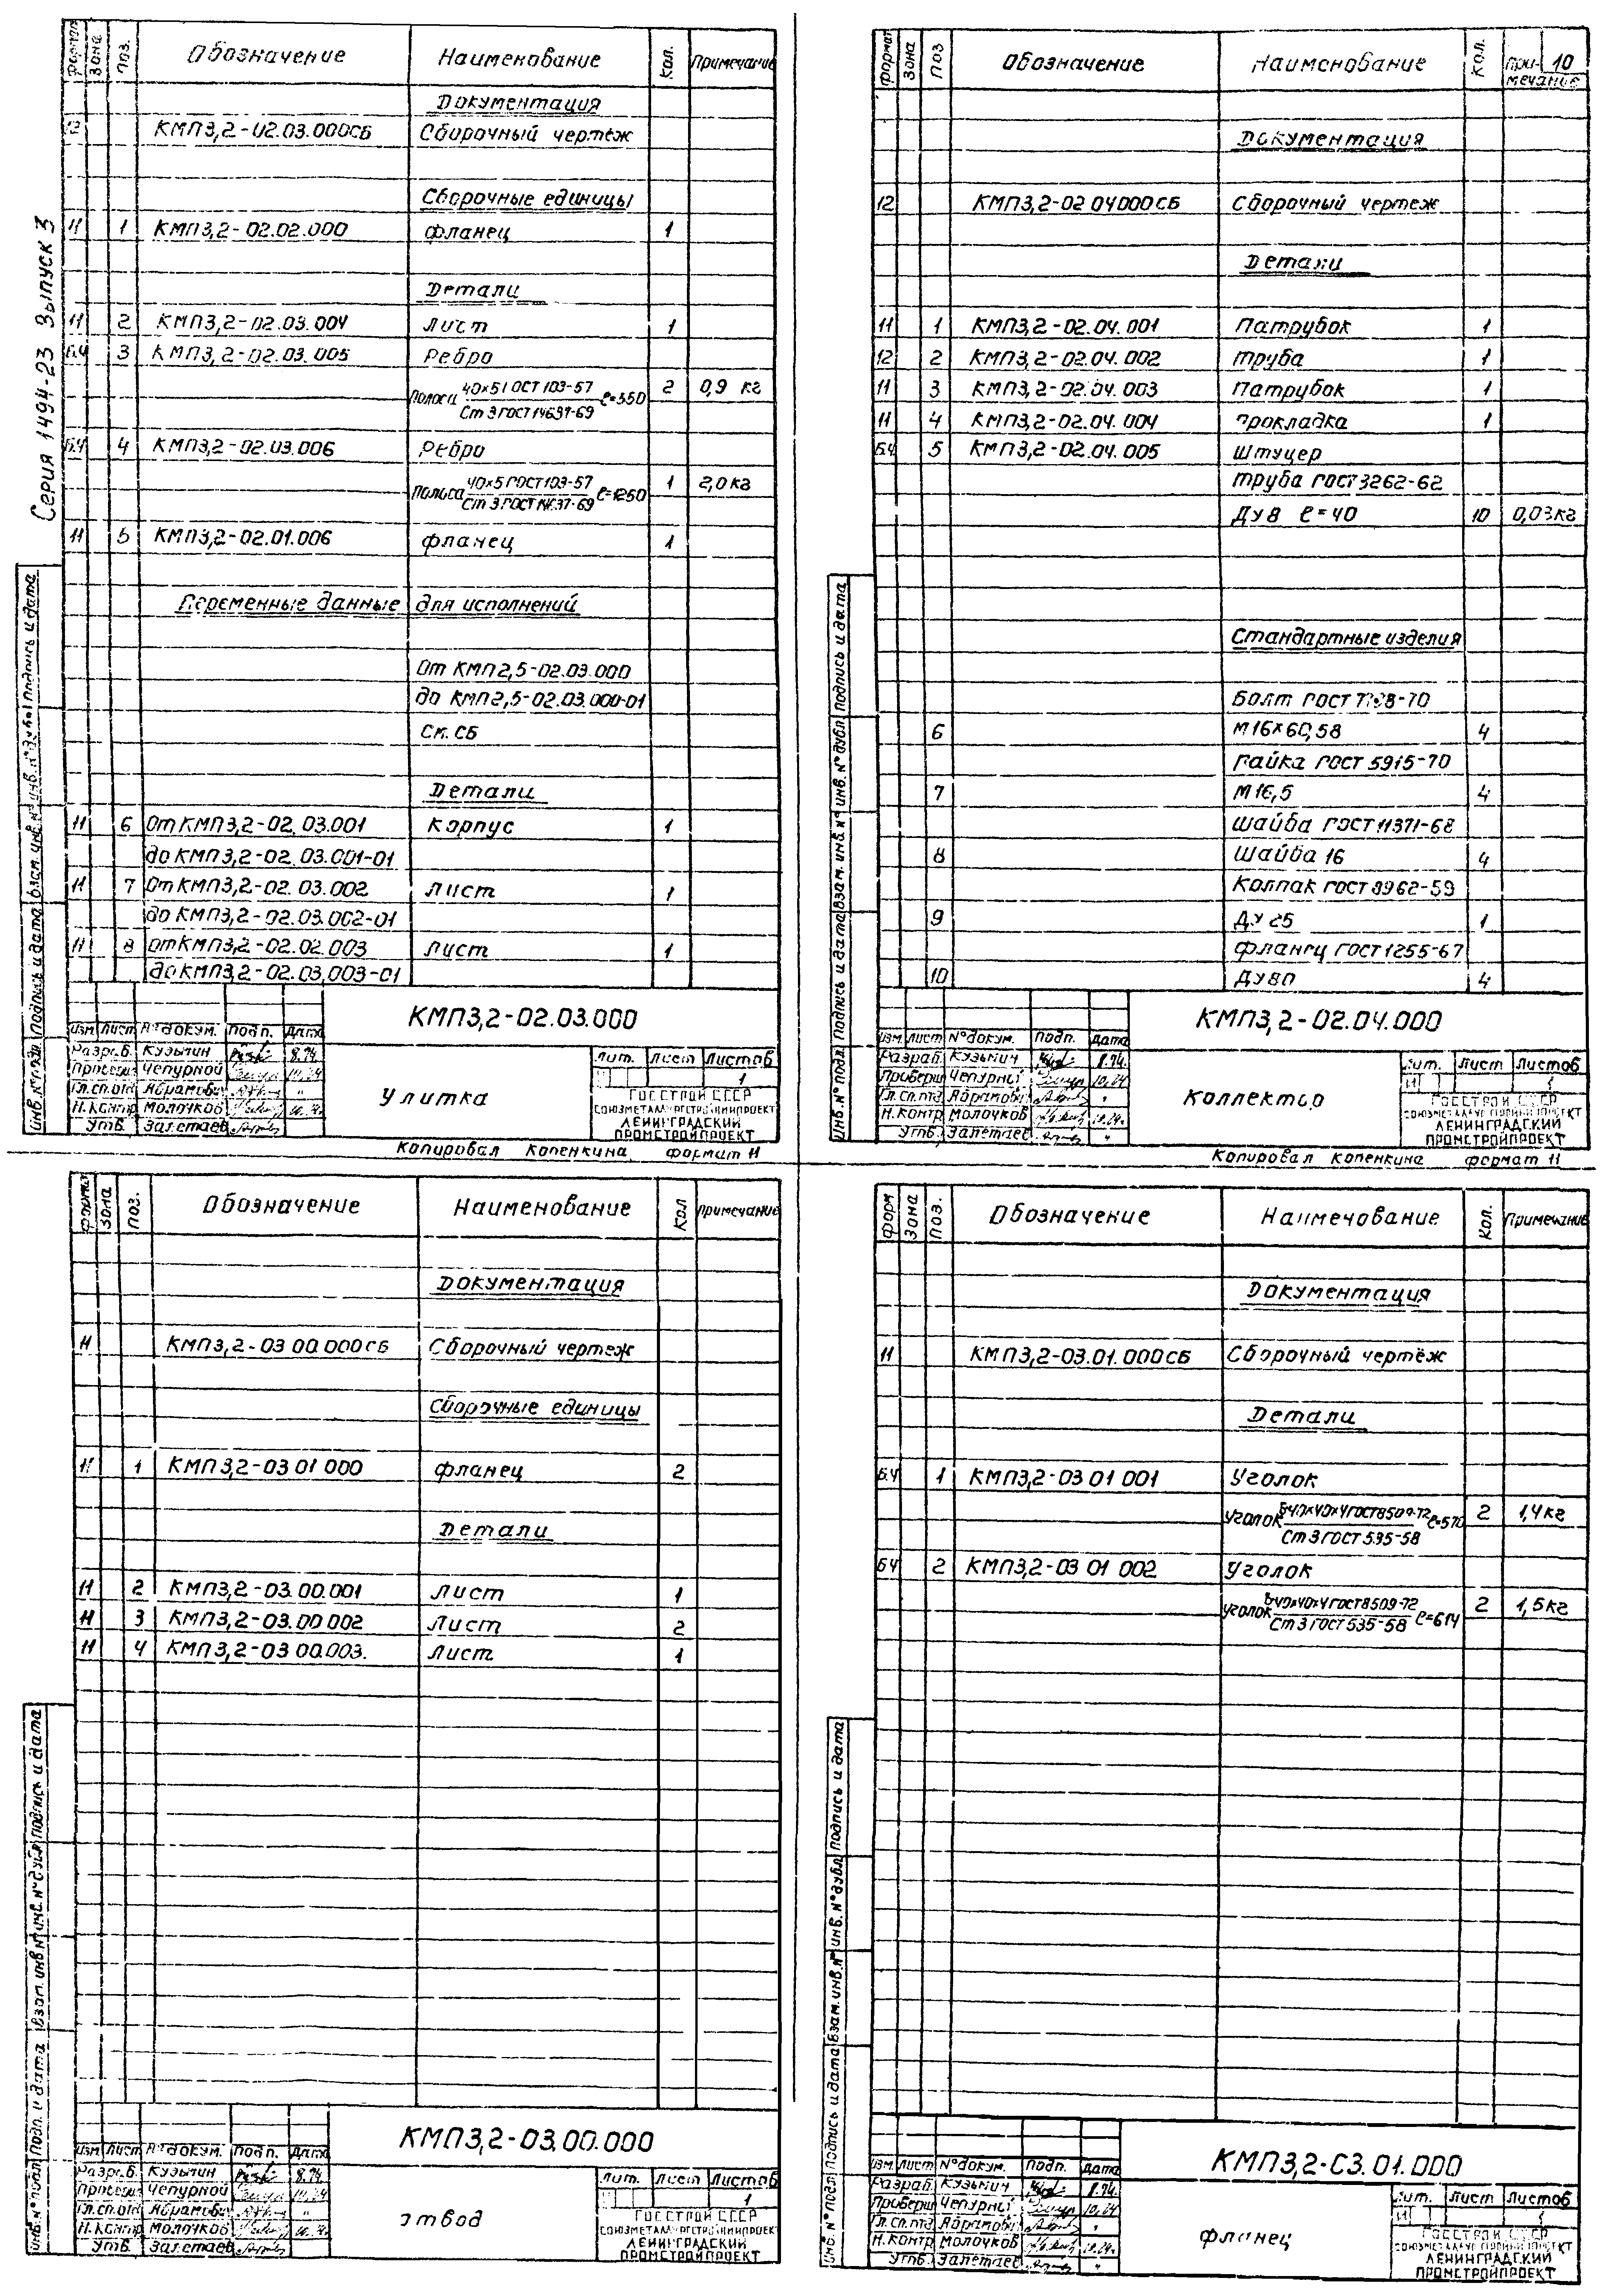 Серия 1494-23 Выпуск 3
Формат Зона Поз. Обозначение Наименование Кол. Примечание
Документация
12 КМП3,2-02.03.000СБ Сборочный чертёж
Сборочные единицы
11 1 КМП3,2-02.02.000 фланец 1
Детали
11 2 КМП3,2-02.03.004 Лист 1
Б.Ч 3 КМП3,2-02.03.005 Ребро
Полоса 40×5 ГОСТ 103-57 / Ст 3 ГОСТ 14637-69 ℓ=550 2 0,9 кг
Б.Ч 4 КМП3,2-02.03.006 Ребро
Полоса 40×5 ГОСТ 103-57 / Ст 3 ГОСТ 14637-69 ℓ=1250 1 2,0 кг
11 5 КМП3,2-02.01.006 фланец 1
Переменные данные для исполнений
От КМП2,5-02.03.000
до КМП2,5-02.03.000-01
См. СБ
Детали
11 6 От КМП3,2-02.03.001 Корпус 1
до КМП3,2-02.03.001-01
11 7 От КМП3,2-02.03.002 Лист 1
до КМП3,2-02.03.002-01
11 8 От КМП3,2-02.02.003 Лист 1
до КМП3,2-02.03.003-01
Инв. № подл. Подпись и дата Взам. инв. № Инв. № дубл. Подпись и дата
КМП3,2-02.03.000
Изм Лист № докум. Подп. Дата
Разраб. Кузьмин 8.74
Проверил Чепурной 10.74
Гл.сп.отд Абрамович
Н.контр Молочков
Утв. Залетаев
Улитка
Лит. Лист Листов
1
ГОССТРОЙ СССР
СОЮЗМЕТАЛЛУРГСТРОЙНИИПРОЕКТ
ЛЕНИНГРАДСКИЙ
ПРОМСТРОЙПРОЕКТ
Копировал Копенкина формат 11
Формат Зона Поз Обозначение Наименование Кол. Примечание 10
Документация
12 КМП3,2-02 04000СБ Сборочный чертеж
Детали
11 1 КМП3,2-02.04.001 Патрубок 1
12 2 КМП3,2-02.04.002 Труба 1
11 3 КМП3,2-02.04.003 Патрубок 1
11 4 КМП3,2-02.04.004 Прокладка 1
Б.Ч 5 КМП3,2-02.04.005 Штуцер
Труба ГОСТ 3262-62
ДУ 8 ℓ=40 10 0,03кг
Стандартные изделия
Болт ГОСТ 7798-70
6 М16×60,58 4
Гайка ГОСТ 5915-70
7 М16,5 4
Шайба ГОСТ 11371-68
8 Шайба 16 4
Колпак ГОСТ 8962-59
9 ДУ 25 1
Фланец ГОСТ 1255-67
10 ДУ80 4
Инв. № подл. Подпись и дата Взам. инв. № Инв. № дубл. Подпись и дата
КМП3,2-02.04.000
Изм Лист № докум. Подп. Дата
Разраб. Кузьмин 8.74.
Проверил Чепурной 10.74
Гл.сп.отд Абрамович
Н.контр Молочков 10.74
Утв. Залетаев
Коллектор
Лит. Лист Листов
И 1
ГОССТРОЙ СССР
СОЮЗМЕТАЛЛУРГСТРОЙНИИПРОЕКТ
ЛЕНИНГРАДСКИЙ
ПРОМСТРОЙПРОЕКТ
Копировал Копенкина формат 11
Формат Зона Поз. Обозначение Наименование Кол Примечание
Документация
11 КМП3,2-03 00.000СБ Сборочный чертеж
Сборочные единицы
11 1 КМП3,2-03 01 000 фланец 2
Детали
11 2 КМП3,2-03.00.001 Лист 1
11 3 КМП3,2-03.00 002 Лист 2
11 4 КМП3,2-03 00.003. Лист 1
Инв. № подл Подп. и дата Взам. инв № Инв. № дубл Подпись и дата
КМП3,2-03.00.000
Изм Лист № докум. Подп. Дата
Разраб. Кузьмин 8.74
Проверил Чепурной 10.74
Гл.сп.отд Абрамович
Н.контр Молочков
Утв. Залетаев
Отвод
Лит. Лист Листов
1
ГОССТРОЙ СССР
СОЮЗМЕТАЛЛУРГСТРОЙНИИПРОЕКТ
ЛЕНИНГРАДСКИЙ
ПРОМСТРОЙПРОЕКТ
Форм Зона Поз. Обозначение Наименование Кол. Примечание
Документация
11 КМП3,2-03.01.000СБ Сборочный чертёж
Детали
Б.Ч 1 КМП3,2-03 01 001 Уголок
Уголок Б40×40×4 ГОСТ 8509-72 / Ст 3 ГОСТ 535-58 ℓ=570 2 1,4кг
БЧ 2 КМП3,2-03 01 002 Уголок
Уголок Б40×40×4 ГОСТ 8509-72 / Ст 3 ГОСТ 535-58 ℓ=614 2 1,5кг
Инв. № подл Подпись и дата Взам. инв. № Инв. № дубл. Подпись и дата
КМП3,2-03.01.000
Изм. Лист № докум. Подп. Дата
Разраб Кузьмин 8.74.
Проверил Чепурной 10.74
Гл.сп.отд Абрамович
Н.контр Молочков 10.74
Утв. Залетаев
фланец
Лит. Лист Листов
И 1
ГОССТРОЙ СССР
СОЮЗМЕТАЛЛУРГСТРОЙНИИПРОЕКТ
ЛЕНИНГРАДСКИЙ
ПРОМСТРОЙПРОЕКТ